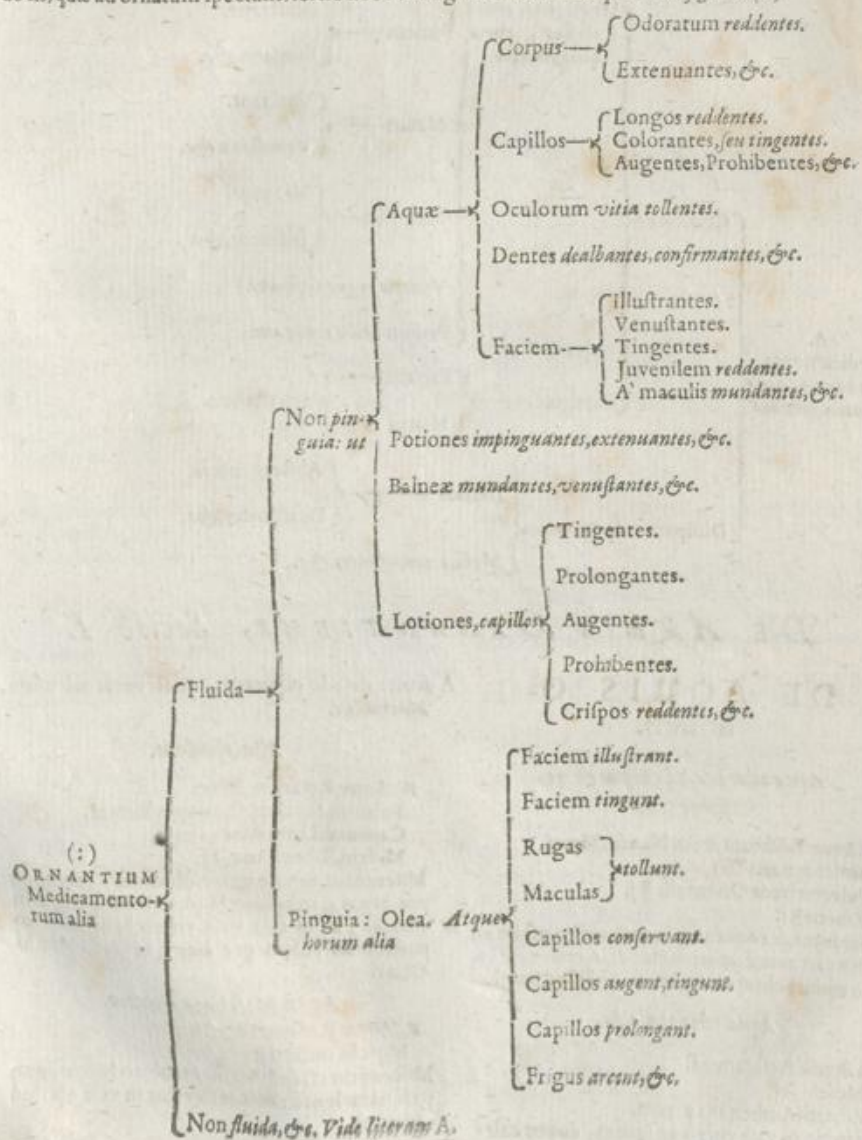 quæ ad ornatum
Corpus
Odoratum reddentes.
Extenuantes, &c.
Capillos
Longos reddentes.
Colorantes, seu tingentes.
Augentes, Prohibentes, &c.
Aquæ
Oculorum vitia tollentes.
Dentes dealbantes, confirmantes, &c.
Faciem
illustrantes.
Venustantes.
Tingentes.
Juvenilem reddentes.
A' maculis mundantes, &c.
Non pin-
guia: ut
Potiones impinguantes, extenuantes, &c.
Balneæ mundantes, venustantes, &c.
Lotiones, capillos
Tingentes.
Prolongantes.
Augentes.
Prohibentes.
Crispos reddentes, &c.
Fluida
(:)
ORNANTIUM
Medicamento-
rum alia
Pinguia: Olea. Atque
horum alia
Faciem illustrant.
Faciem tingunt.
Rugas
Maculas
tollunt.
Capillos conservant.
Capillos augent, tingunt.
Capillos prolongant.
Frigus arcent, &c.
Non fluida, &c. Vide literam A.